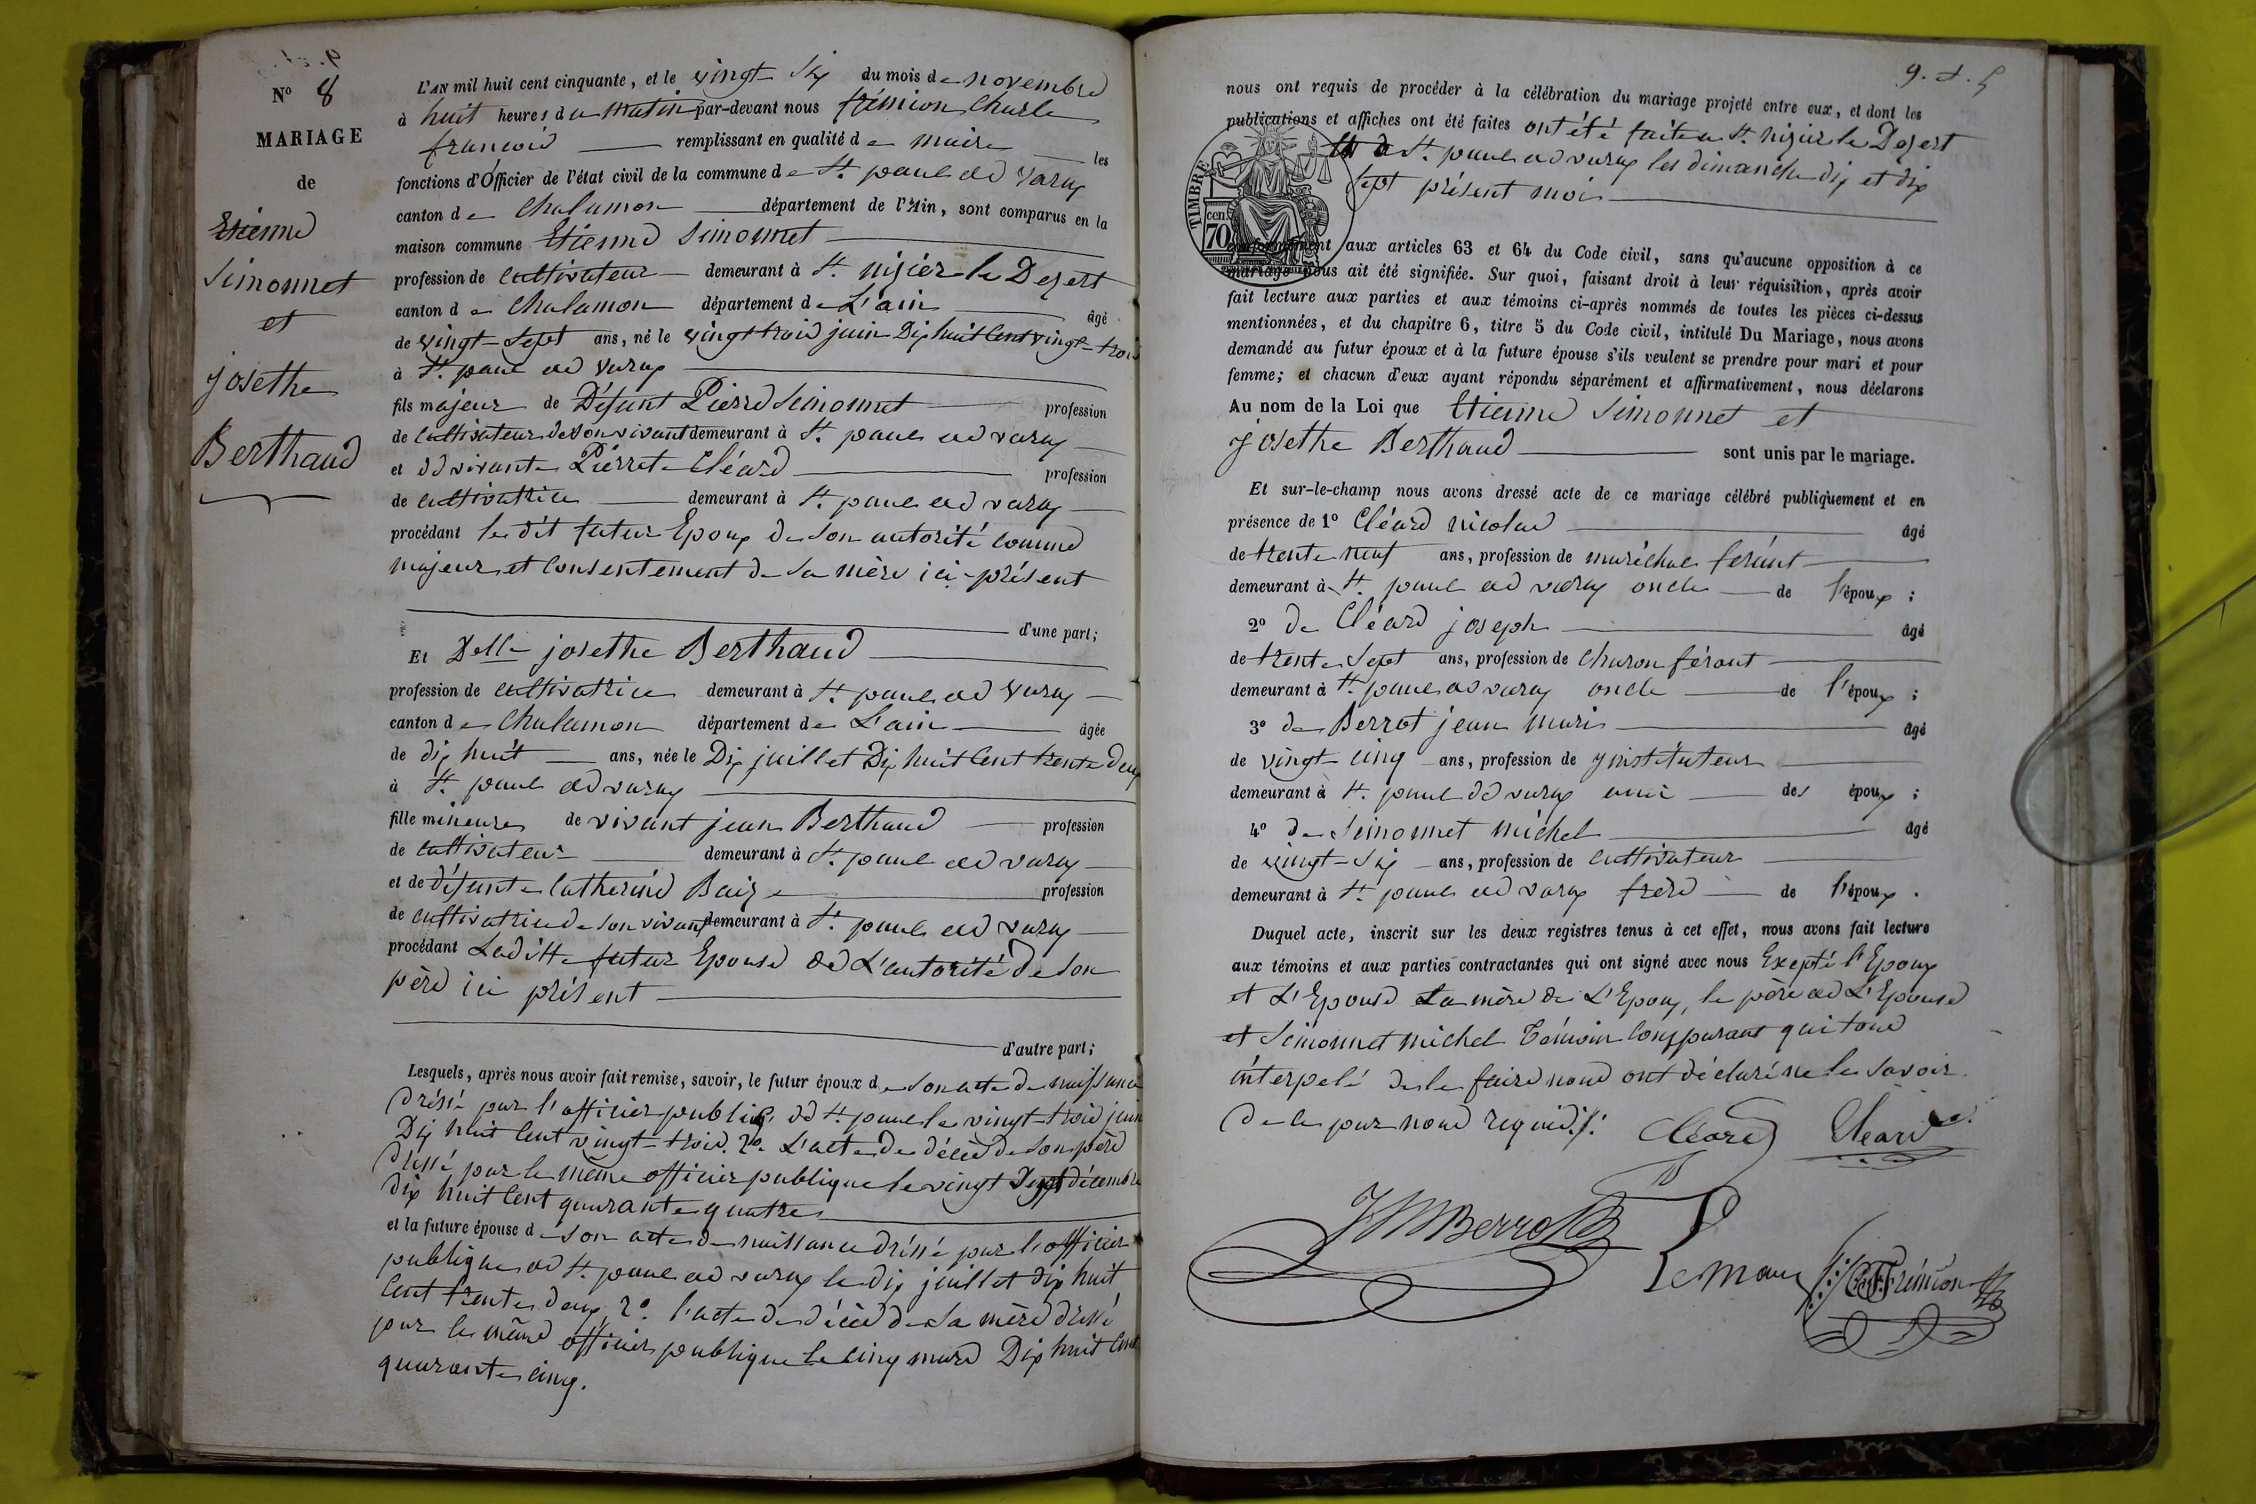 N° 8
MARIAGE
de
Etienne
Simonnet
et
josethe
Berthaud
L'AN mil huit cent cinquante, et le vingt-six du mois de novembre
à huit heures du matin par-devant nous frémion Charle
francois remplissant en qualité de maire les
fonctions d'Officier de l'état civil de la commune de St. paul de varax
canton de Chalamon département de l'Ain, sont comparus en la
maison commune Etienne Simonnet
profession de cultivateur demeurant à St. nizier le Desert
canton de Chalamon département de L'ain âgé
de vingt-sept ans, né le vingt trois juin Dix huit Cent vingt-trois
à St. paul de varax
fils majeur de Défunt Pierre Simonnet profession
de cultivateur de son vivant demeurant à St. paul de varax
et de vivante Pierrete Cléard profession
de cultivatrice demeurant à St. paul de varax
procédant le dit futur Epoux de son autorité comme
majeur et Consentement de sa mère ici-présent
d'une part;
Et Delle josethe Berthaud
profession de cultivatrice demeurant à St. paul de varax
canton de Chalamon département de L'ain âgée
de dix huit ans, née le Dix juillet Dix huit Cent trente deux
à St. paul de varax
fille mineure de vivant jean Berthaud profession
de cultivateur demeurant à St. paul de varax
et de défunte Catherine profession
de cultivatrice de son vivant demeurant à St. paul de varax
procédant Laditte futur Epouse de L'autorité de son
père ici présent
d'autre part;
Lesquels, après nous avoir fait remise, savoir, le futur époux de son acte de naissance
dréssé par l'officier public de St. paul le vingt-trois juin
Dix huit Cent vingt-trois. 2° L'acte de décès de son père
dréssé par le même officier publique le vingt Sept décembre
dix huit Cent quarante quatre
et la future épouse de son acte de naissance dréssé par l'officier
publique de St. paul de varax le dix juillet dix huit
Cent trente deux, 2° l'acte de décès de sa mère dréssé
par le même officier publique le cinq mars Dix huit Cent
quarante cinq.
nous ont requis de procéder à la célébration du mariage projeté entre eux, et dont les
publications et affiches ont été faites ont été faite a St. nizier le Desert
St. paul de varax les dimanche dix et dix
sept présent mois
TIMBRE
cen.
70
conformément aux articles 63 et 64 du Code civil, sans qu'aucune opposition à ce
mariage nous ait été signifiée. Sur quoi, faisant droit à leur réquisition, après avoir
fait lecture aux parties et aux témoins ci-après nommés de toutes les pièces ci-dessus
mentionnées, et du chapitre 6, titre 5 du Code civil, intitulé Du Mariage, nous avons
demandé au futur époux et à la future épouse s'ils veulent se prendre pour mari et pour
femme; et chacun d'eux ayant répondu séparément et affirmativement, nous déclarons
Au nom de la Loi que Etienne Simonnet et
josethe Berthaud sont unis par le mariage.
Et sur-le-champ nous avons dressé acte de ce mariage célébré publiquement et en
présence de 1° Cléard nicolas âgé
de trente neuf ans, profession de maréchal ferant
demeurant à St. paul de varax oncle de l'époux ;
2° de Cléard joseph âgé
de trente sept ans, profession de charon férant
demeurant à St. paul de varax oncle de l'époux ;
3° de Berrot jean marie âgé
de vingt cinq ans, profession de ynstituteur
demeurant à St. paul de varax ami des époux ;
4° de Simonnet michel âgé
de vingt-six ans, profession de cultivateur
demeurant à St. paul de varax frère de l'époux .
Duquel acte, inscrit sur les deux registres tenus à cet effet, nous avons fait lecture
aux témoins et aux parties contractantes qui ont signé avec nous Excepté l'Epoux
et L'Epouse La mère de L'Epoux, le père de L'Epouse
et Simonnet michel Témoin Comparant qui tous
interpelé de le faire nous ont déclaré ne le savoir
de ce par nous requis./:
Cléard Cleard
JM Berrot
Le maire Frémion